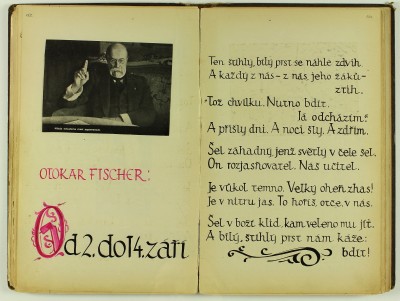 OTOKAR FISCHER:
Od 2. do 14. září
Ten štíhlý, bílý prst se náhle zdvih.
A každý z nás – z nás, jeho žáků –
ztih.
Tož chvilku. Nutno bdít.
Já odcházím?
A přišly dni. A noci šly. A zdřím.
Šel záhadný jenž světlý v čele šel.
On rozjasňovatel. Náš učitel.
Je vůkol temno. Velký oheň zhas!
Je v nitru jas. To hoříš, otče, v nás.
Šel v boží klid, kam veleno mu jít.
A bílý, štíhlý prst nám káže:
bdít!